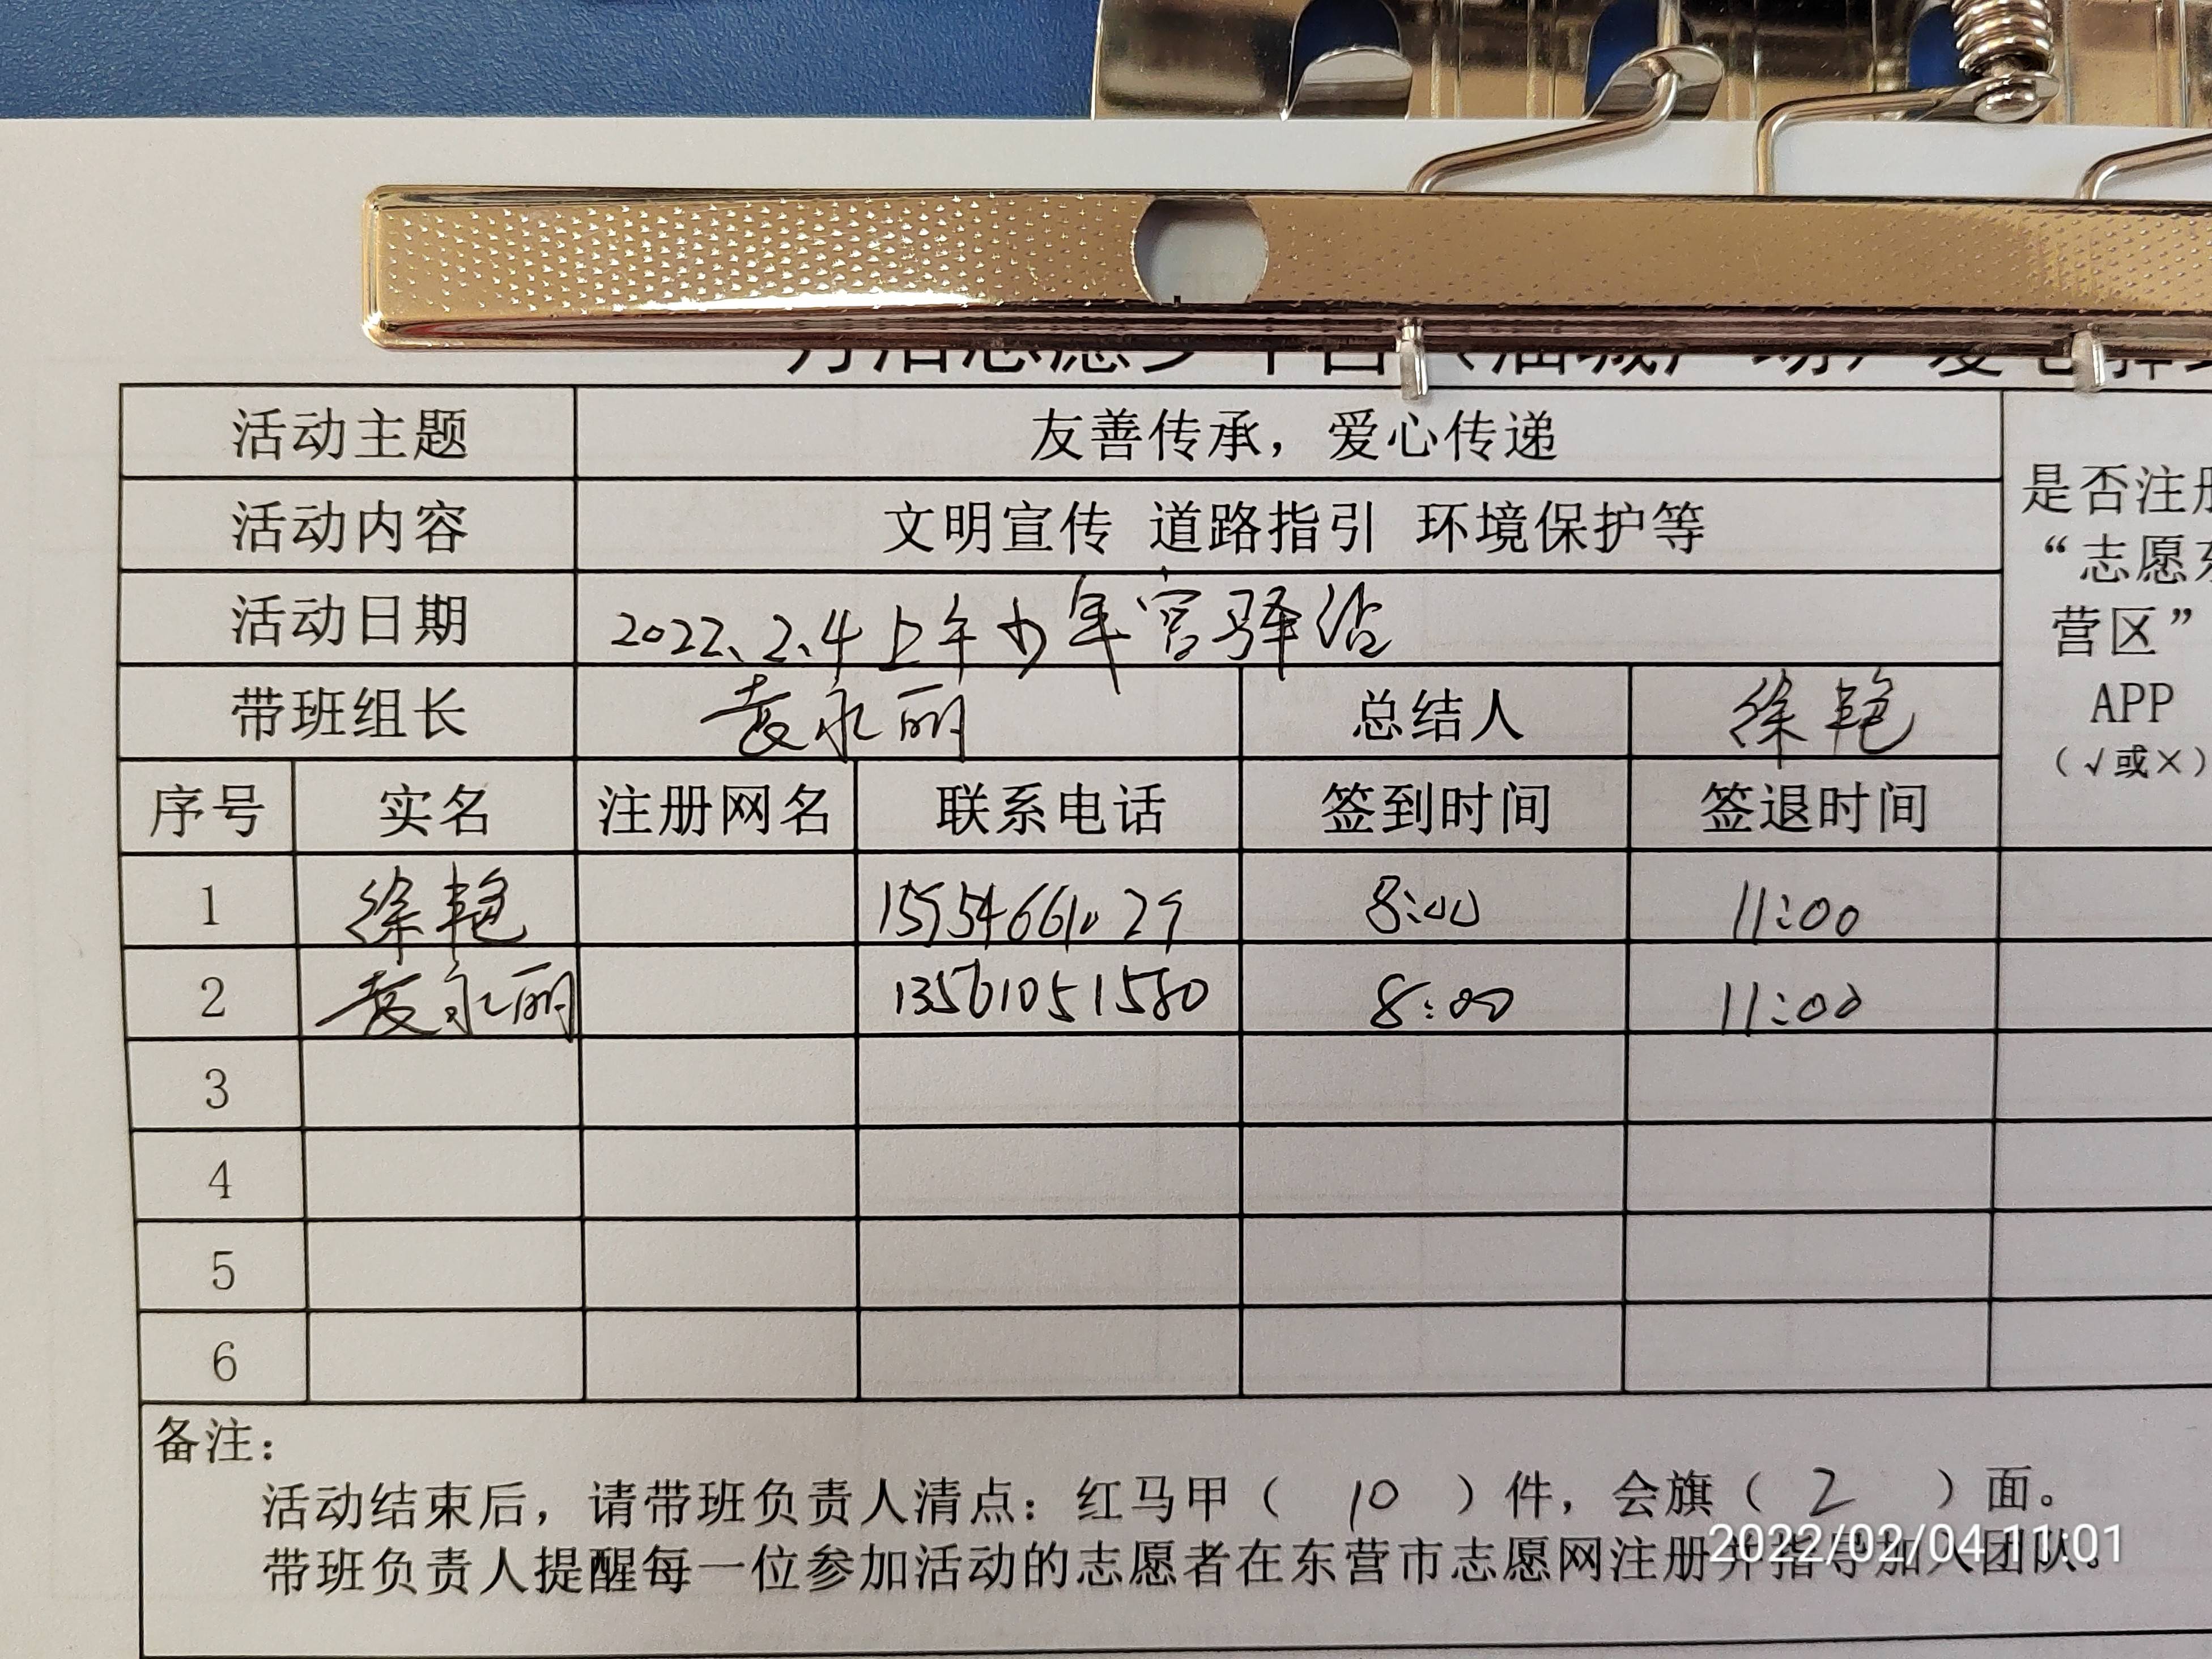 活动主题 友善传承，爱心传递
活动内容 文明宣传 道路指引 环境保护等
活动日期 2022、2、4上午少年宫驿站
是否注册
“志愿东
营区”
APP
（√或×）
带班组长 袁永丽 总结人 徐艳
序号 实名 注册网名 联系电话 签到时间 签退时间
1 徐艳 15954661029 8:00 11:00
2 袁永丽 13561051580 8:00 11:00
3
4
5
6
备注：
活动结束后，请带班负责人清点：红马甲（ 10 ）件，会旗（ 2 ）面。
带班负责人提醒每一位参加活动的志愿者在东营市志愿网注册并指导加入团队。
2022/02/04 11:01